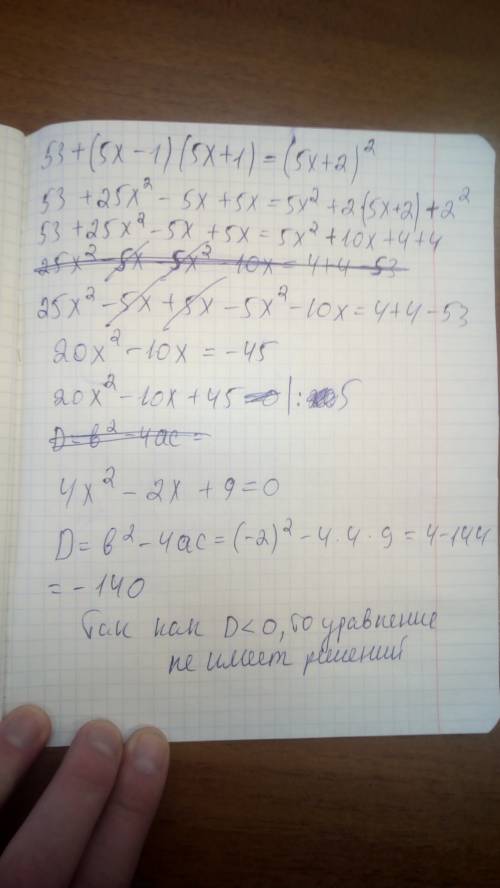 53+(5x-1)(5x+1)=(5x+2)²
53+25x²-5x+5x=5x²+2(5x+2)+2²
53+25x²-5x+5x=5x²+10x+4+4
25x²-5x-5x²-10x=4+4-53
25x²-5x+5x-5x²-10x=4+4-53
20x²-10x=-45
20x²-10x+45=0|:5
D=в²-4ac=
4x²-2x+9=0
D=в²-4ac=(-2)²-4·4·9=4-144
=-140
Так как D<0, то уравнение
не имеет решений